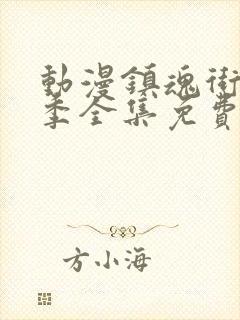 動漫鎮魂街
季全集免費
方小海